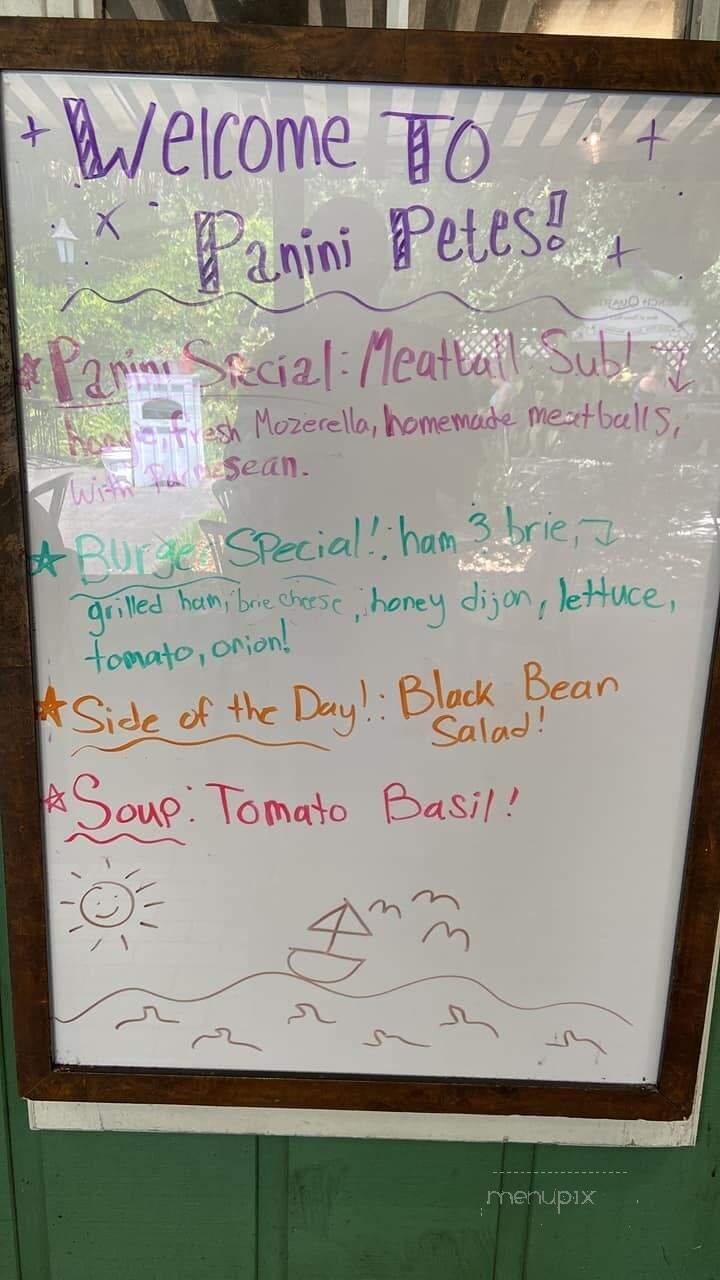 Welcome To
Panini Petes!
Panini Special: Meatball Sub!
hoagie, fresh Mozerella, homemade meatballs,
with Parmesean.
Burger Special!: ham 3 brie,
grilled ham, brie cheese, honey dijon, lettuce,
tomato, onion!
Side of the Day!: Black Bean
Salad!
Soup: Tomato Basil!
menupix